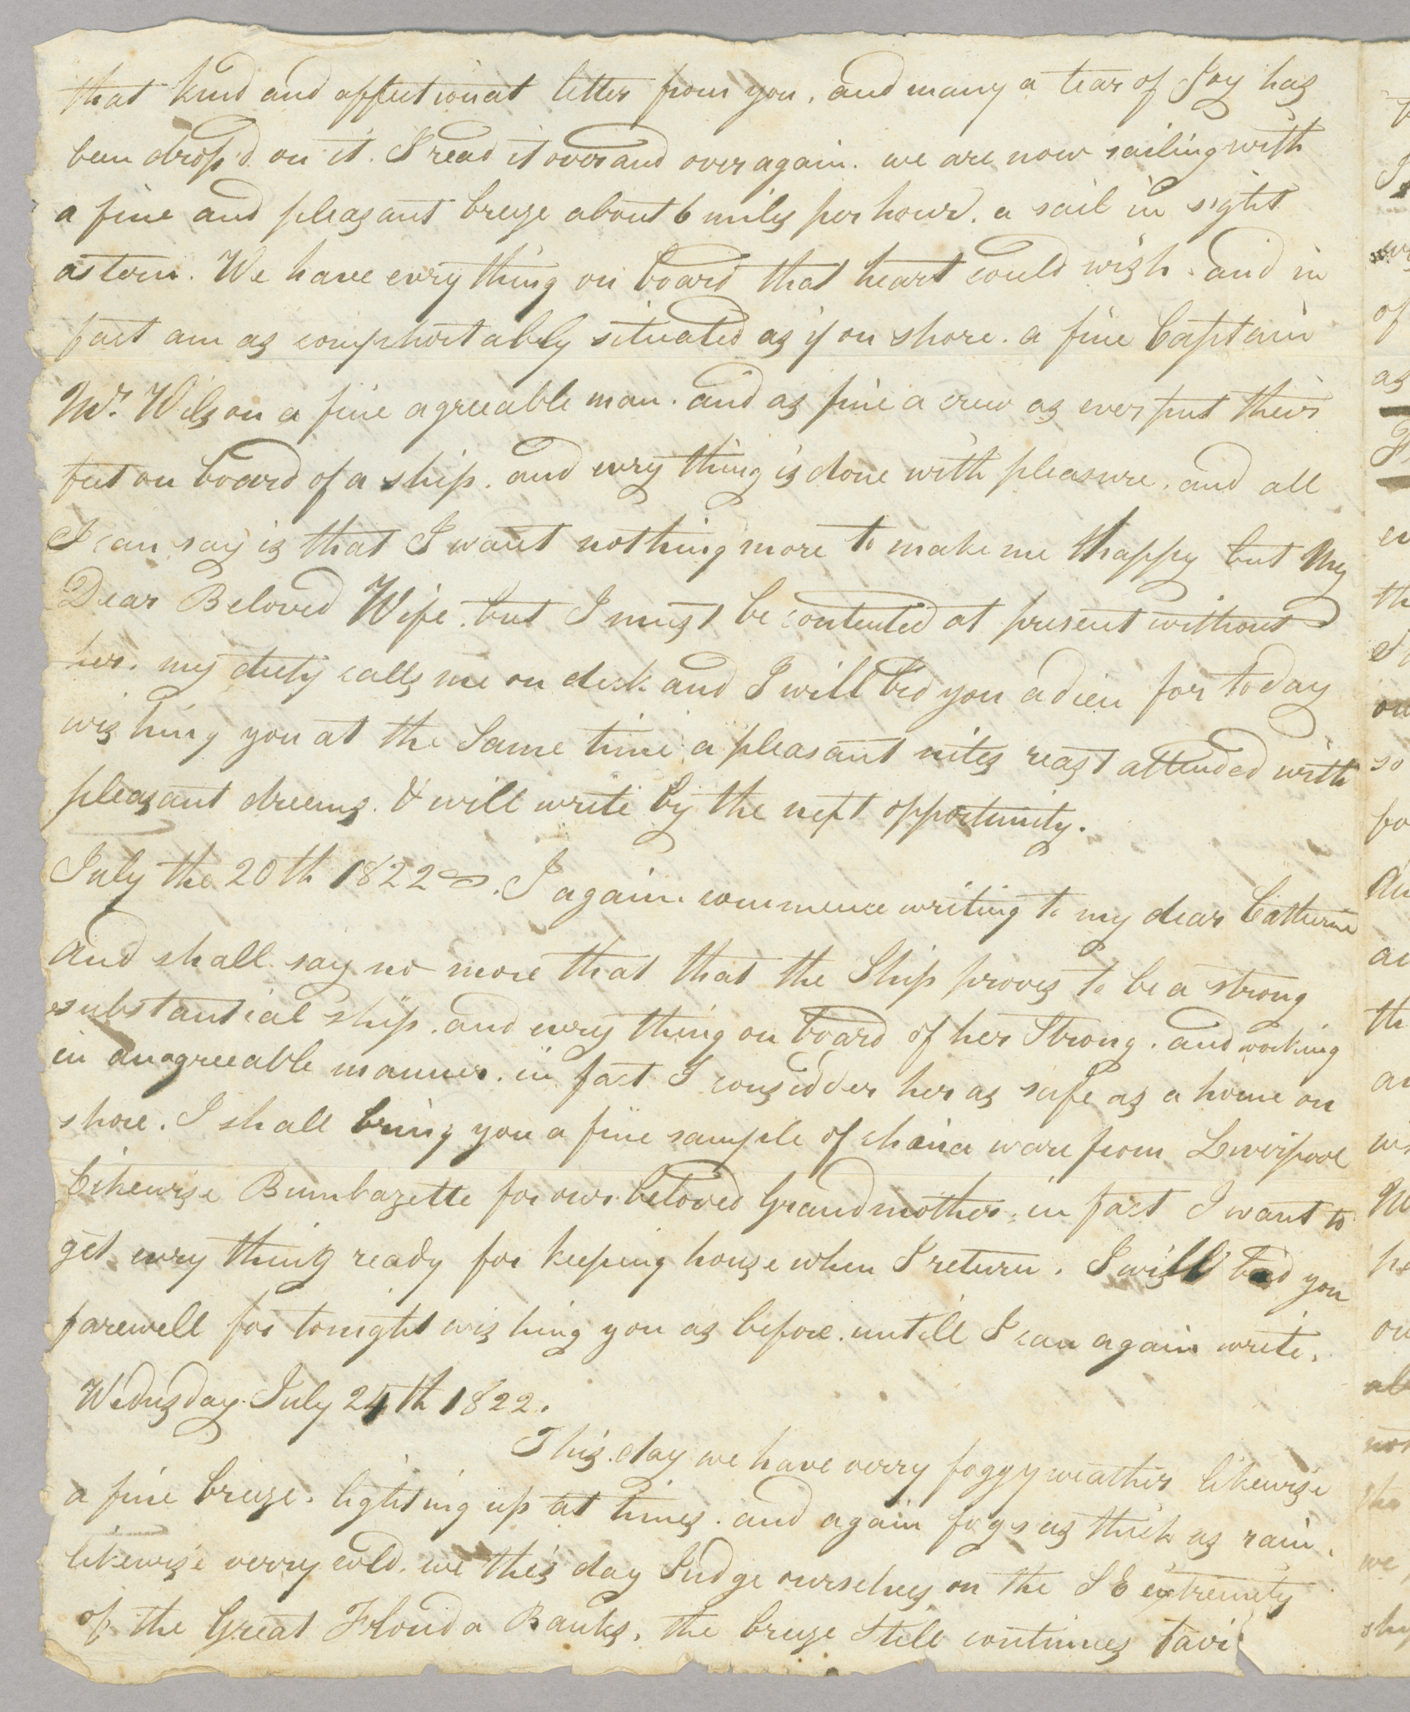 that kind and affectionat letter from you, and many a tear of Joy has
been drop'd on it. I read it over and over again. we are now sailing with
a fine and pleasant breze about 6 miles per hour. a sail in sight
astern. We have evrything on board that heart could wish. and in
fact am as comphortably situated as if on shore. a fine Captain
Mr. Wilson a fine agreeable man. and as fine a crew as ever put their
feet on board of a ship. and evry thing is done with pleasure. and all
I can say is that I want nothing more to make me happy but My
Dear Beloved Wife. but I must be contented at present without
her. my duty calls me on deck and I will bid you adieu for today
wishing you at the Same time a pleasant nites reast attended with
pleasant dreems. & will write by the next opportunity.
July the 20th 1822. I again commence writing to my dear Catherine
And shall say no more that that the Ship proves to be a strong
substantial ship. and evry thing on board of her Strong. and working
in an agreeable manner. in fact I considder her as safe as a home on
shore. I shall bring you a fine sample of china ware from Liverpool
Likewise Bumbazette for our beloved Grandmother, in fact I want to
get evry thing ready for keeping house when I return. I will bid you
farewell for tonight wishing you as before. untill I can again write.
Wedusday July 24th 1822.
This day we have verry foggy weather likewise
a fine breze. lighting up at times. and again fogs as thick as rain.
likewise verry cold. we this day Judge ourselves on the S E extremity
of the Great Florida Banks. the breze Still continues favi